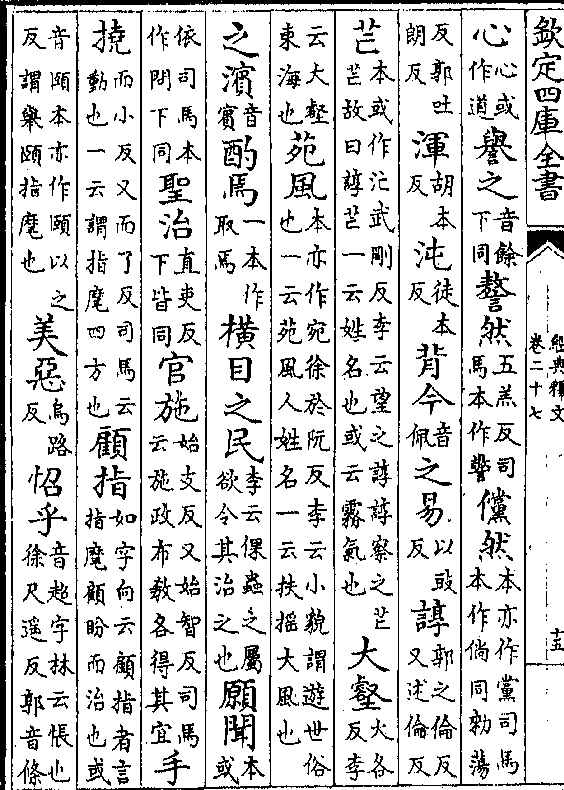 欽定四庫全書
經典釋文
卷二十七
十五
心心或作道譽之音餘下同謷然五羔反司馬本作警儻然本亦作黨司馬本作倘同勑蕩
反郭吐朗反渾胡本反沌徒本反背今音佩之易以豉反諄郭之倫反又述倫反
芒本或作汒武剛反李云望之諄諄察之芒芒故曰諄芒一云姓名也或云霧氣也大壑火各反李
云大壑東海也苑風本亦作宛徐於阮反李云小貌謂遊世俗也一云苑風人姓名一云扶摇大風也
之濱音賓酌焉一本作取焉橫目之民李云倮蟲之屬欲令其治之也願聞本或
依司馬本作問下同聖治直吏反下皆同官施始支反又始智反司馬云施政布教各得其宜手
撓而小反又而了反司馬云動也一云謂指麾四方也顧指如字向云顧指者言指麾顧盼而治也或
音頤本亦作頤以之反謂舉頤指麾也美惡烏路反怊乎音超字林云悵也徐尺遥反郭音條